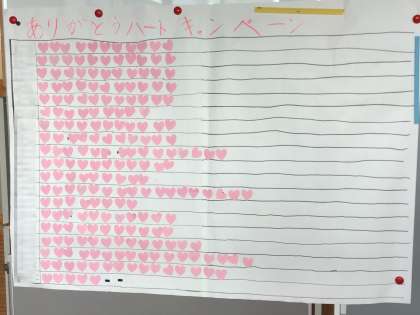 ありがとうハートキャンペーン